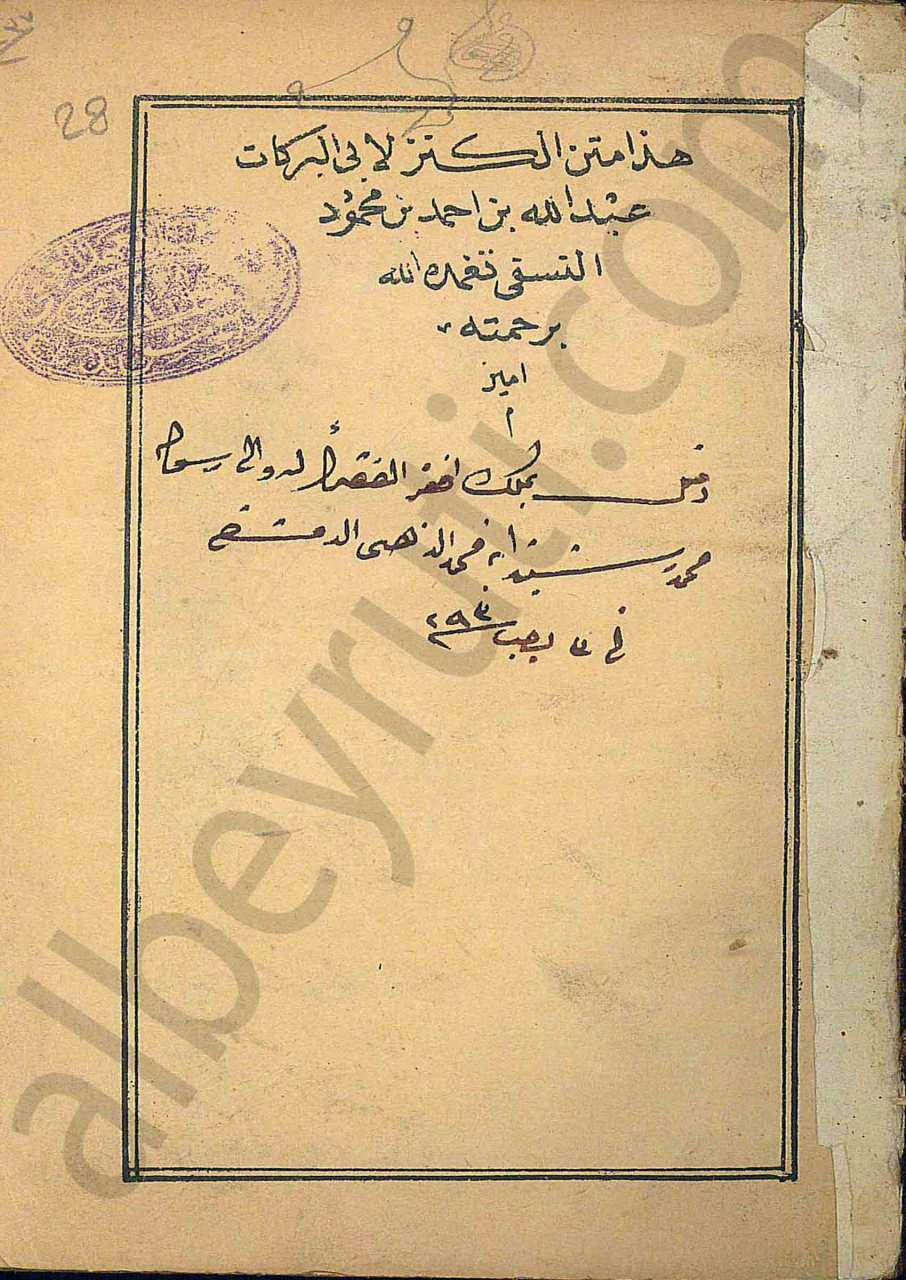 28
هذا متن الكنز لابى البركات
عبد الله بن احمد بن محمود
النسفى تغمده الله
برحمته
امين
دخل بملك افقر الفقراء له والى رسوله
محمد رشيد ابن محمد الذهبى الدمشقي
فى رجب
albeyruti.com